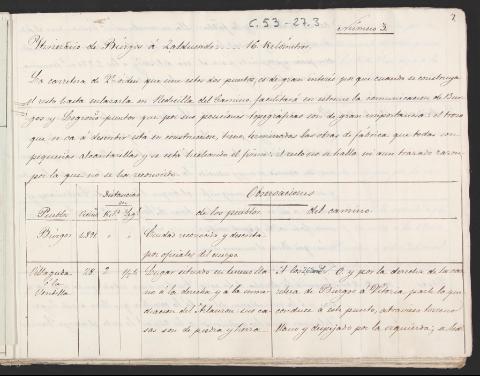 C. 53-27.3
Número 3.
2
Itinerario de Búrgos á Zalduendo 16 Kilómetros.
La carretera de 2º orden que une estos dos puntos, es de gran interés por que cuando se construya
el resto hasta enlazarla en Redecilla del Camino, facilitará en estremo la comunicacion de Bur-
gos y Logroño puntos que por sus posiciones topográficas son de gran importancia: el trozo
que se vá á describir está en construcion, tiene terminadas las obras de fabrica que todas son
pequeñas alcantarillas y se está haciendo el firme. El resto no se halla ni aun trazado razon
por la que no se ha reconocido.
Distancias
en
Observaciones
Pueblos
Vecinº
Kilº
Legº
de los pueblos
del camino.
Búrgos
4.891
"
"
Ciudad reconocida y descrita
por oficiales del cuerpo.
Villayuda
ó la
Ventilla
28
2
Lugar situado en terreno lla-
no á la derecha y á la inme-
diacion del Arlanzon: sus ca-
sas son de piedra y tierra
A los O. y por la derecha de la car-
retera de Búrgos á Vitoria, parte la que
conduce á este punto, atraviesa terreno
llano y despejado por la izquierda; a los